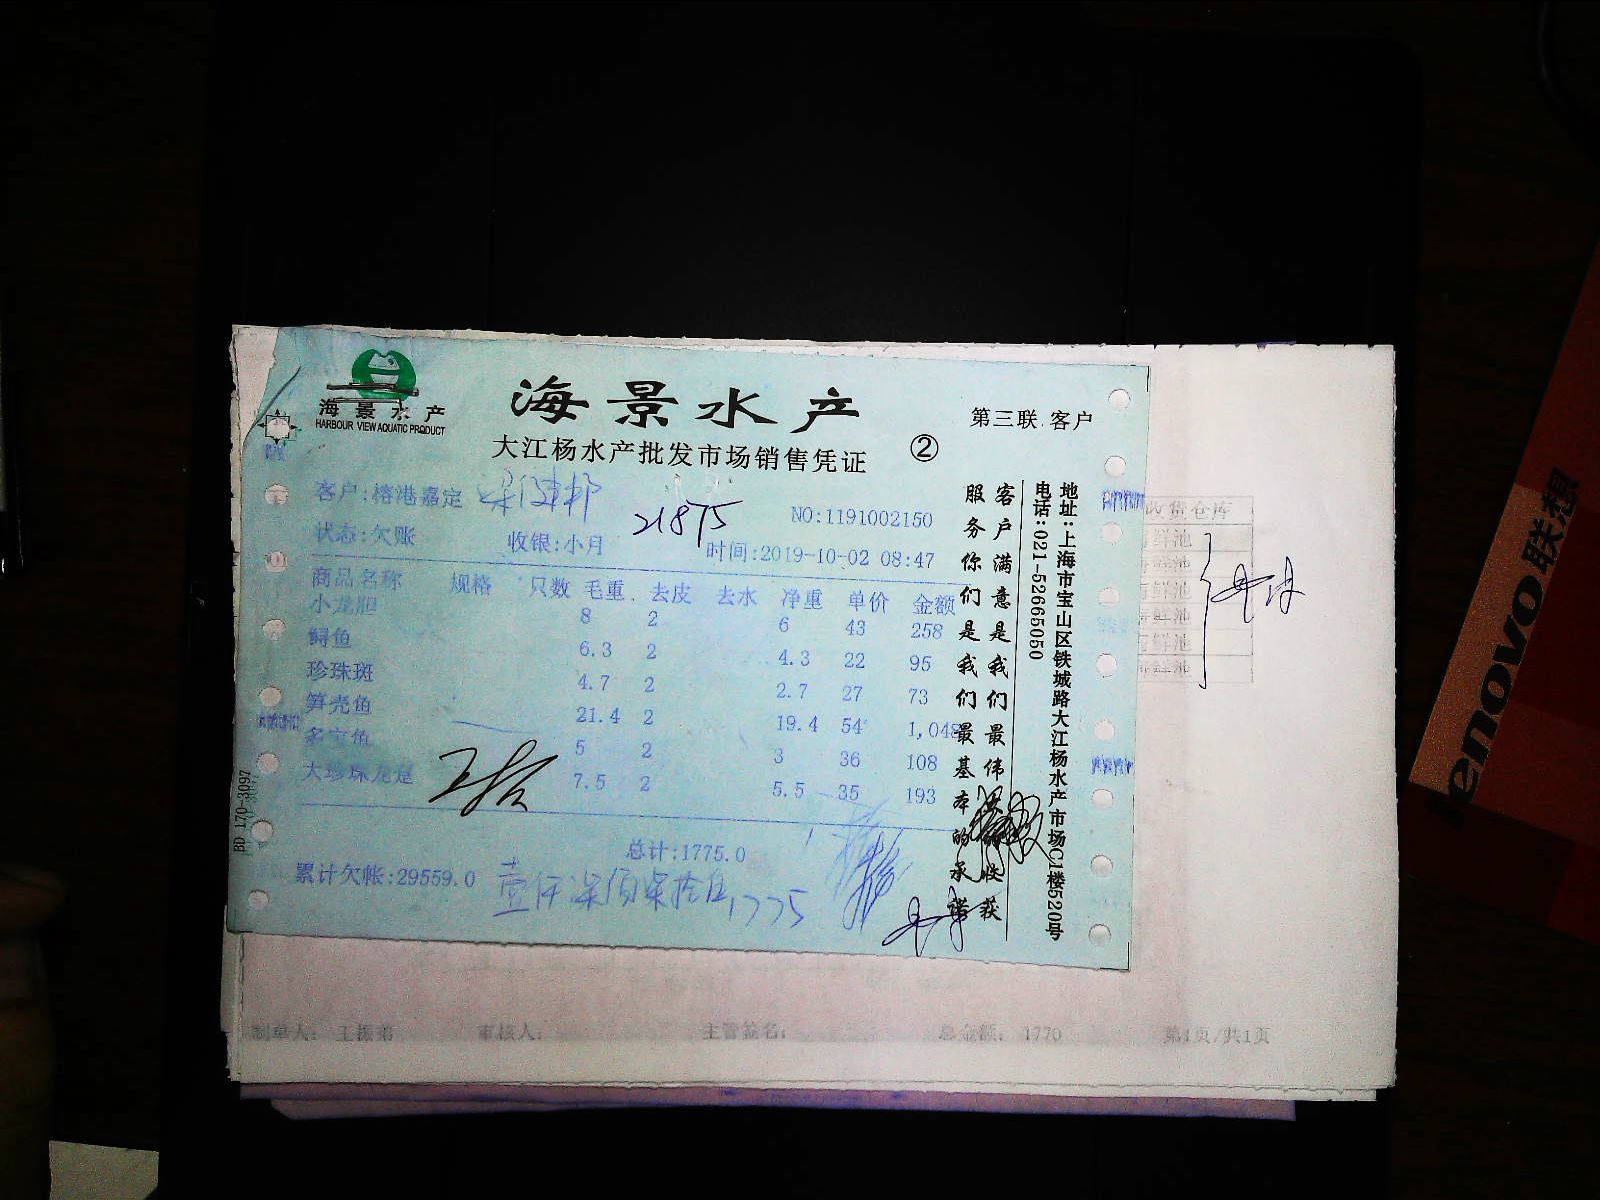 海景水产
HARBOUR VIEW AQUATIC PRODUCT
海景水产
大江杨水产批发市场销售凭证
②
第三联 客户
客户:榕港嘉定
21875
NO:1191002150
状态:欠账 收银:小月 时间:2019-10-02 08:47
商品名称 规格 只数 毛重 去皮 去水 净重 单价 金额
小龙胆 8 2 6 43 258
鲟鱼 6.3 2 4.3 22 95
珍珠斑 4.7 2 2.7 27 73
笋壳鱼 21.4 2 19.4 54 1,048
多宝鱼 5 2 3 36 108
大珍珠龙趸 7.5 2 5.5 35 193
总计:1775.0
累计欠帐:29559.0
壹仟柒佰柒拾伍 1775
客户满意是我们最伟 收获
服务你们是我们最基本的承诺
地址:上海市宝山区铁城路大江杨水产市场C1楼520号
电话:021-52665050
BD 170-3097
收货仓库
海鲜池
海鲜池
海鲜池
海鲜池
海鲜池
海鲜池
制单人: 王振弟 审核人: 主管签名: 总金额: 1770 第1页/共1页
lenovo联想